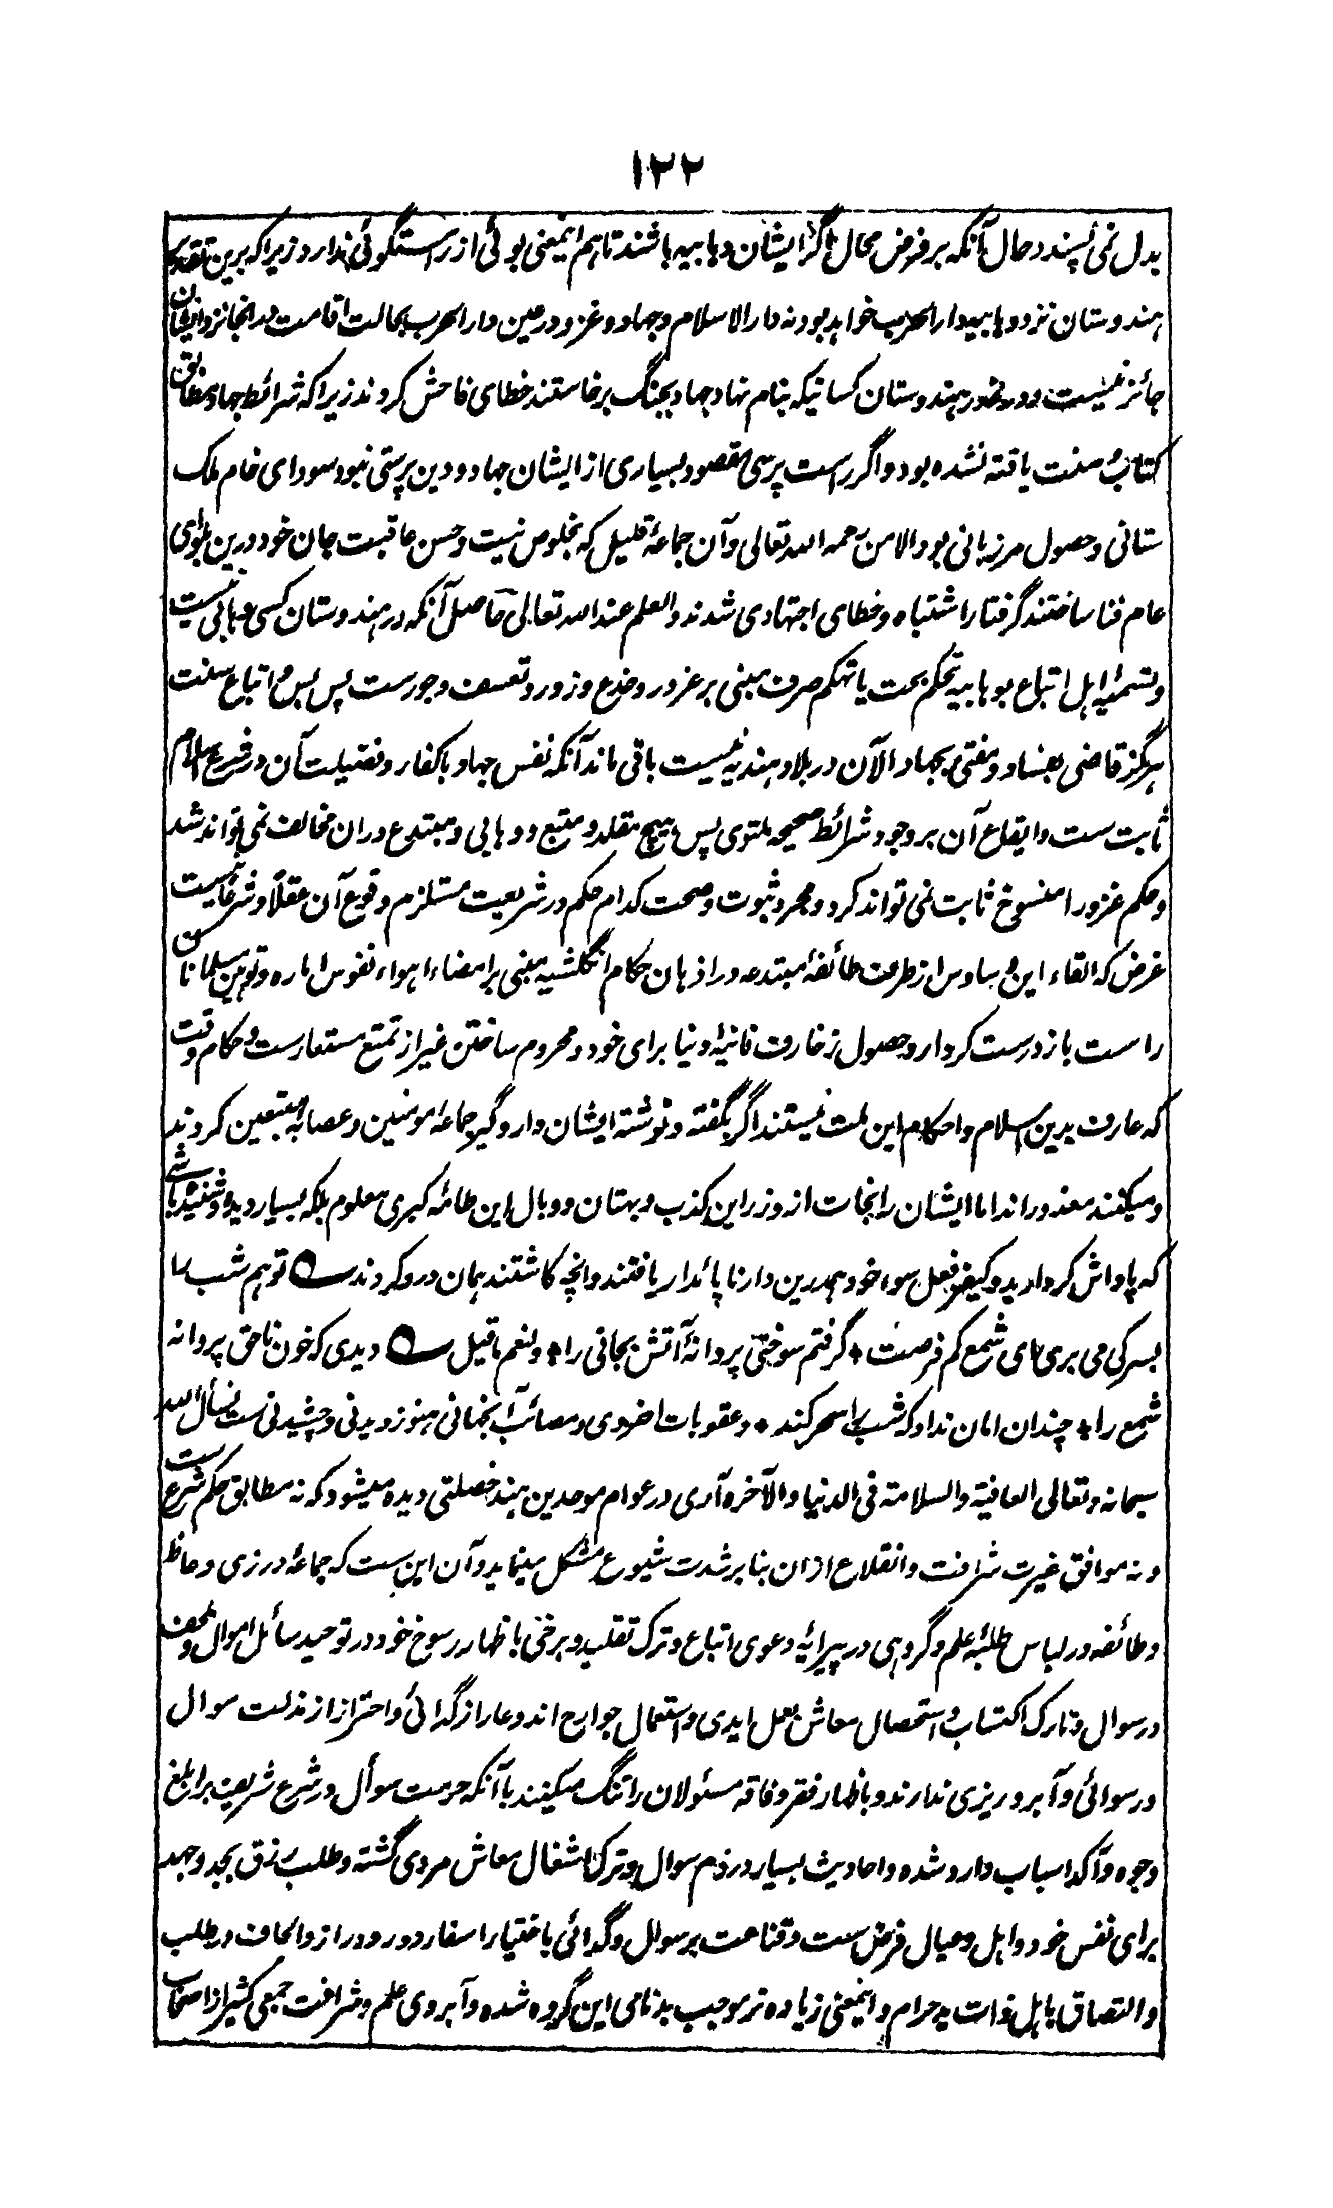 ۱۲۲
بدل نمی پسندد حال آنکه بر فرض محال اگر ایشان وهابیه باشند تاهم اینمعنی بوئی از راستگوئی ندارد زیراکه برین تقدیر
هندوستان نزد وهابیه دار الحرب خواهد بود نه دار الاسلام وجهاد و غزو در عین دار الحرب بحالت اقامت در انجا نزد ایشان
جائز نیست و در غدر هندوستان کسانیکه بنام نهاد جهاد بجنگ برخاستند خطای فاحش کردند زیراکه شرائط جهاد مطابق
کتاب و سنت یافته نشده بود و اگر راست پرسی مقصود بسیاری از ایشان جهاد و دین پرستی نبود سودای خام ملک
ستانی و حصول مرزبانی بود الا من رحمه الله تعالی و آن جماعهٔ قلیل که بخلوص نیت و حسن عاقبت جان خود درین بلوای
عام فنا ساختند گرفتار اشتباه و خطای اجتهادی شدند والعلم عند الله تعالی حاصل آنکه در هندوستان کسی وهابی نیست
و تسمیهٔ اهل اتباع بوهابیه تحکم بحت یا تهکم صرف مبنی بر غرور و خدع و زور و تعسف و جورست پس بس و اتباع سنت
هرگز قاضی بفساد و مفتی بجهاد الآن در بلاد هندیه نیست باقی ماند آنکه نفس جهاد با کفار و فضیلت آن در شرع اسلام
ثابت ست و ایقاع آن بر وجود شرائط صحیحه ملتوی پس هیچ مقلد و متبع و وهابی و مبتدع دران مخالف نمی تواند شد
و حکم غزو را منسوخ ثابت نمی تواند کرد و مجرد ثبوت و صحت کدام حکم در شریعت مستلزم وقوع آن عقلاً و شرعاً نیست
غرض که القاء این وساوس از طرف طائفهٔ مبتدعه در اذهان حکام انگلشیه مبنی بر امضاء اهواء نفوس اماره و توهین مسلمانان
راست باز درست کردار و حصول زخارف فانیهٔ دنیا برای خود و محروم ساختن غیر از تمتع مستعارست و حکام وقت
که عارف بدین اسلام و احکام این ملت نیستند اگر بگفته و نوشتهٔ ایشان دار و گیر جماعهٔ مومنین و عصابهٔ متبعین کردند
و میکنند معذور اند اما ایشان را نجات از وزر این کذب و بهتان و وبال این طامهٔ کبری معلوم بلکه بسیار دیده و شنیده باشی
که پاداش کردار بد و کیفر فعل سوء خود همدرین دار ناپائدار یافتند و انچه کاشتند همان درو کردند ؎ تو هم شب را
بسر کی می بری ای شمع کم فرصت ٭ گرفتم سوختی پروانهٔ آتش بجانی را ٭ و لنعم ما قیل ؎ دیدی که خون ناحق پروانه
شمع را ٭ چندان امان نداد که شب را سحر کند ٭ و عقوبات اخروی و مصائب آنجهانی هنوز دیدنی و چشیدنی ست نسأل الله
سبحانه و تعالی العافیة والسلامة فی الدنیا والآخره آری در عوام موحدین هند خصلتی دیده میشود که نه مطابق حکم شرع ست
و نه موافق غیرت شرافت و انقلاع ازان بنا بر شدت شیوع مشکل مینماید و آن این ست که جماعهٔ در زی وعاظ
و طائفه در لباس طلبهٔ علم و گروهی در پیرایهٔ دعوی اتباع و ترک تقلید و برخی باظهار رسوخ خود در توحید سائل اموال و ملحف
در سوال و تارک اکتساب و استحصال معاش بعمل ایدی و استعمال جوارح اند و عار از گدائی و احتراز از مذلت سوال
و رسوائی و آبرو ریزی ندارند و باظهار فقر و فاقه مسئولان را تنگ میکنند با آنکه حرمت سوأل در شرع شریف بر ابلغ
وجوه و آکد اسباب وارد شده و احادیث بسیار در ذم سوال و ترک اشغال معاش مروی گشته و طلب رزق بجد و جهد
برای نفس خود و اهل و عیال فرض ست و قناعت بر سوال و گدائی باختیار اسفار دور و دراز و الحاف در طلب
و التصاق باهل ذات ید حرام و اینمعنی زیاده تر موجب بدنامی این گروه شده و آبروی علم و شرافت جمعی کثیر از اصحاب